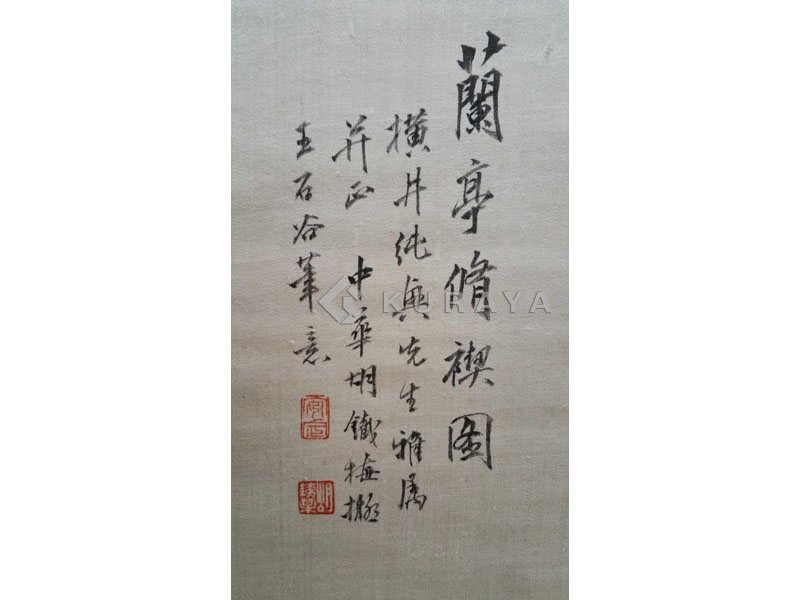 蘭亭脩禊圖
橫井純興先生雅属
并正 中華胡鐵梅擬
王石谷筆意
KURAYA